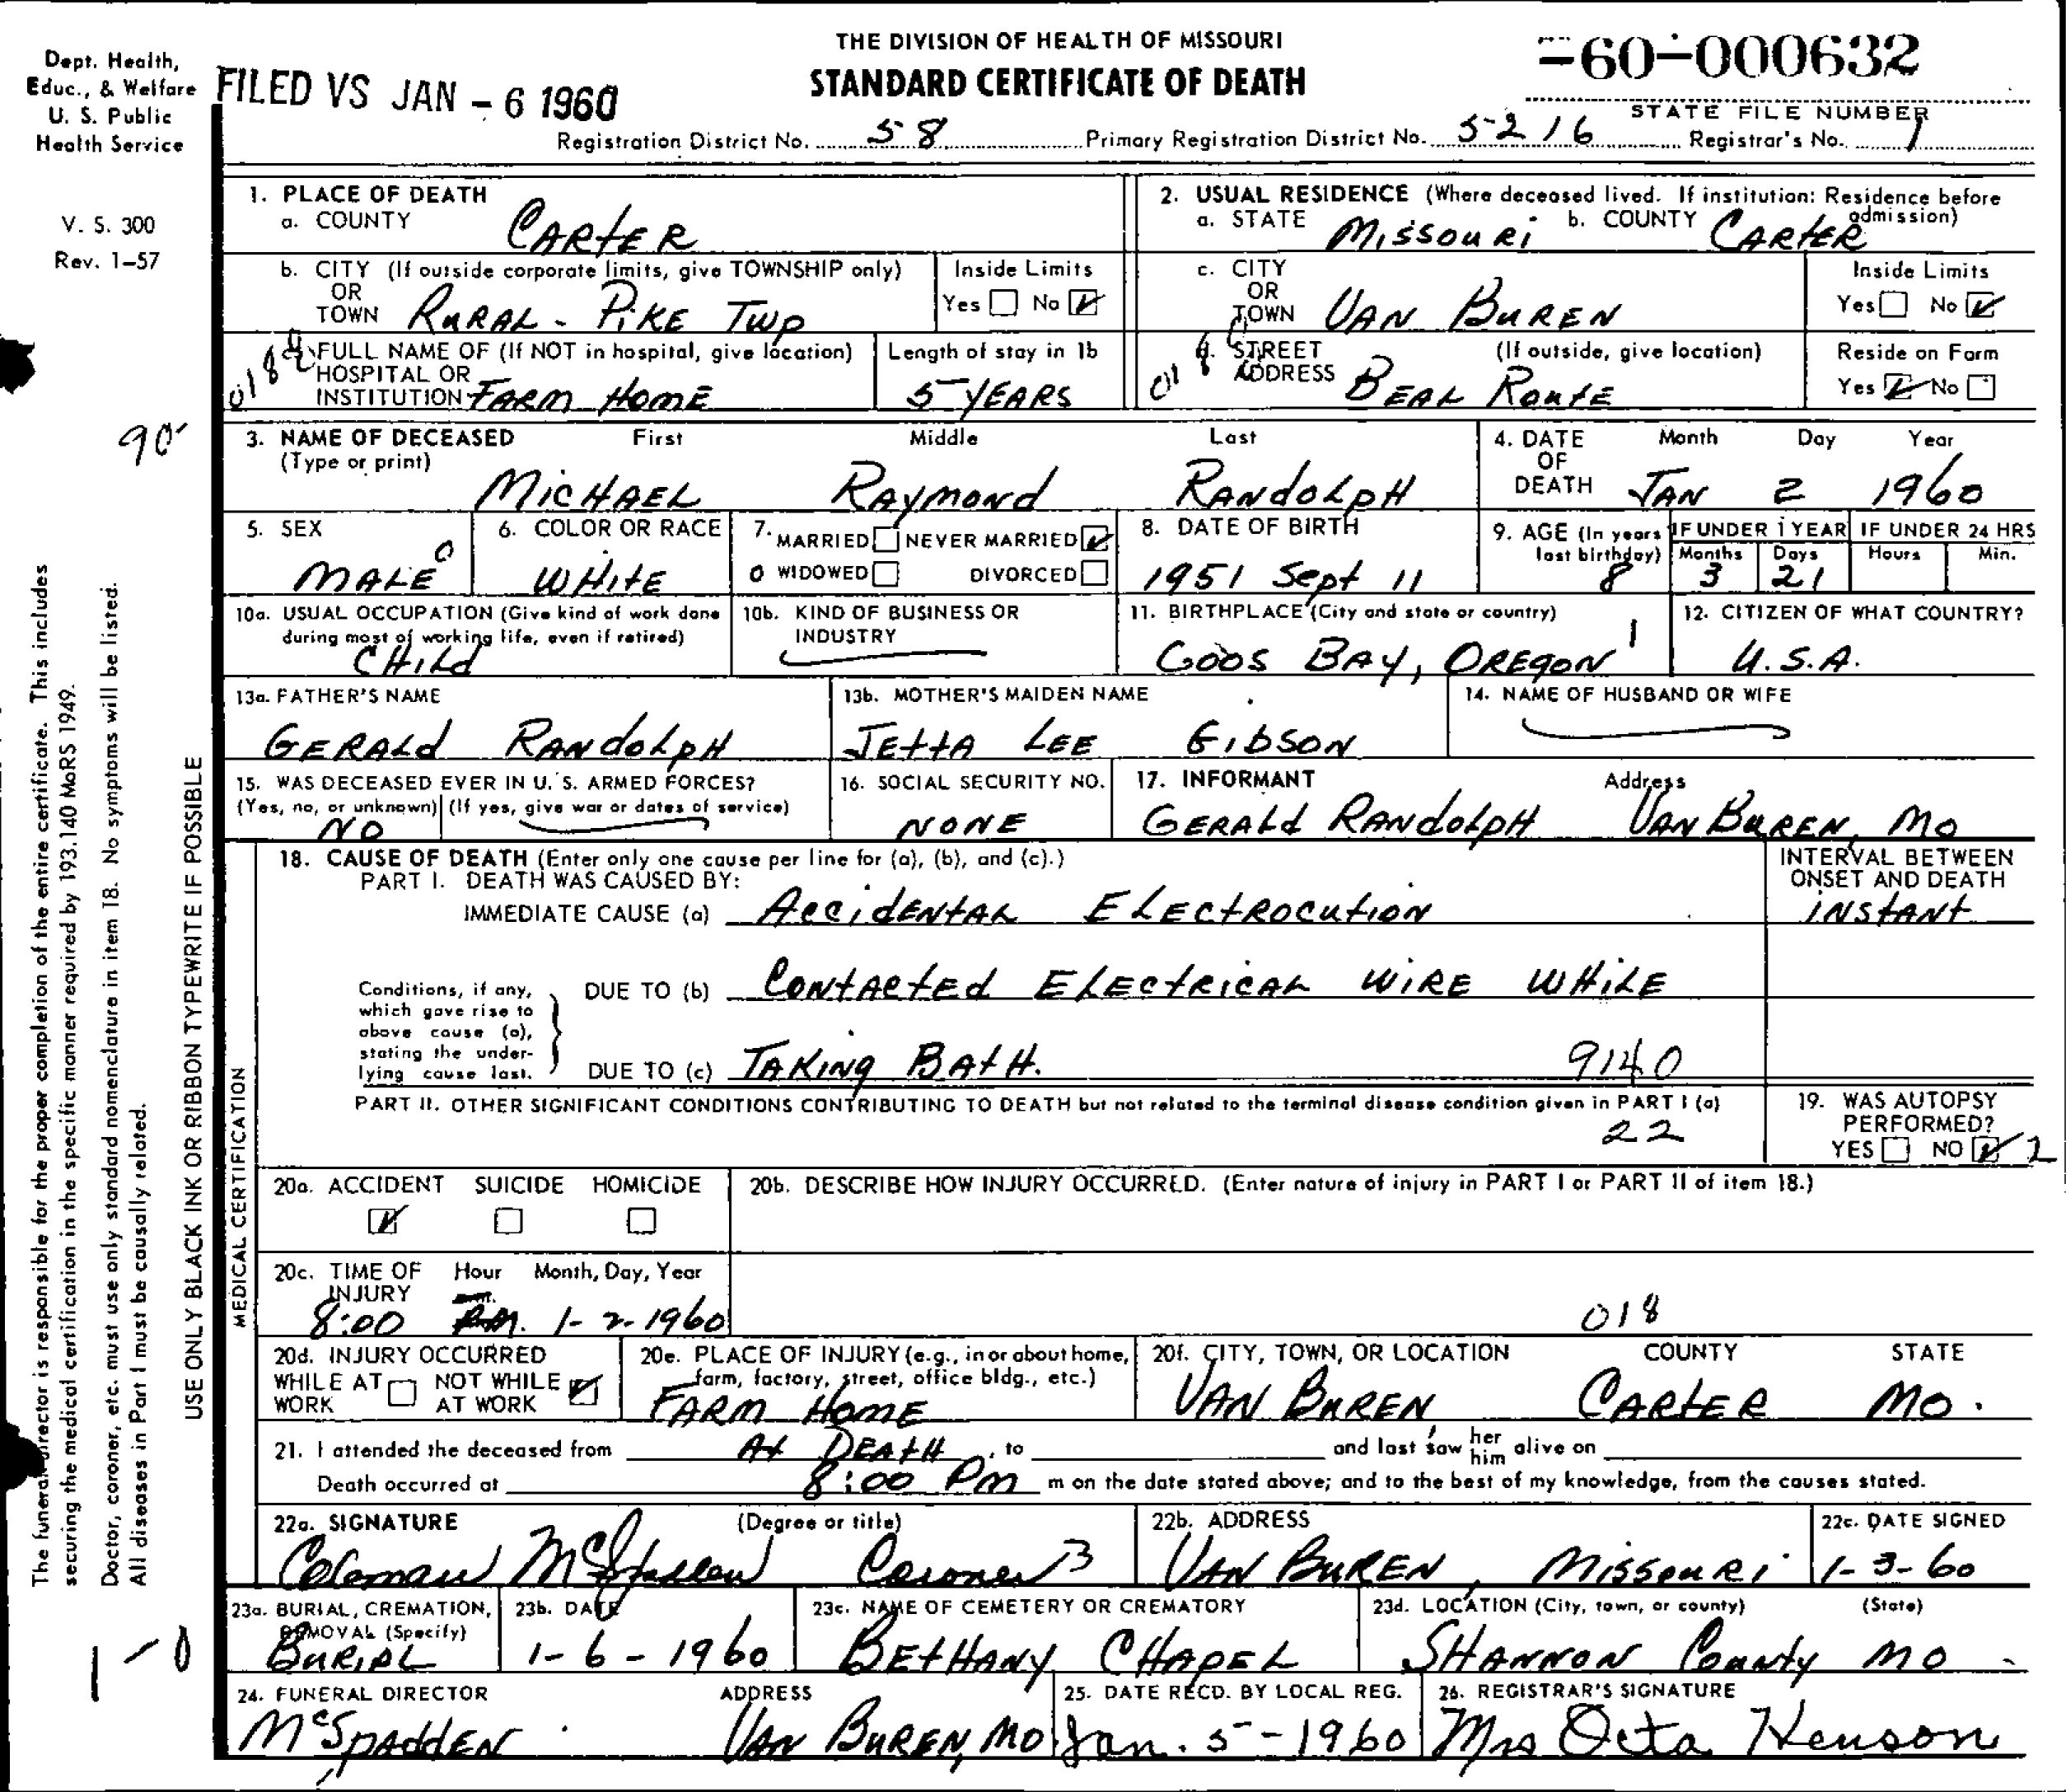 THE DIVISION OF HEALTH OF MISSOURI
STANDARD CERTIFICATE OF DEATH
-60-000632
STATE FILE NUMBER
Dept. Health,
Educ., & Welfare
U. S. Public
Health Service
FILED VS JAN - 6 1960
Registration District No. 58 Primary Registration District No. 5216 Registrar's No. 1
V. S. 300
Rev. 1-57
1. PLACE OF DEATH
a. COUNTY CARTER
2. USUAL RESIDENCE (Where deceased lived. If institution: Residence before admission)
a. STATE MISSOURI b. COUNTY CARTER
b. CITY (If outside corporate limits, give TOWNSHIP only)
OR
TOWN RURAL - PIKE TWP
Inside Limits
Yes No
c. CITY
OR
TOWN VAN BUREN
Inside Limits
Yes No
FULL NAME OF (If NOT in hospital, give location)
HOSPITAL OR
INSTITUTION FARM HOME
Length of stay in 1b
5 YEARS
d. STREET (If outside, give location)
ADDRESS BEAL ROUTE
Reside on Farm
Yes No
90
3. NAME OF DECEASED First Middle Last
(Type or print)
MICHAEL RAYMOND RANDOLPH
4. DATE OF DEATH Month Day Year
JAN 2 1960
5. SEX
MALE 0
6. COLOR OR RACE
WHITE
7. MARRIED NEVER MARRIED
0 WIDOWED DIVORCED
8. DATE OF BIRTH
1951 Sept 11
9. AGE (In years last birthday) 8
IF UNDER 1 YEAR
Months 3 Days 21
IF UNDER 24 HRS
Hours Min.
10a. USUAL OCCUPATION (Give kind of work done
during most of working life, even if retired)
CHILD
10b. KIND OF BUSINESS OR
INDUSTRY
11. BIRTHPLACE (City and state or country)
COOS BAY, OREGON 1
12. CITIZEN OF WHAT COUNTRY?
U.S.A.
13a. FATHER'S NAME
GERALD RANDOLPH
13b. MOTHER'S MAIDEN NAME
JETTA LEE GIBSON
14. NAME OF HUSBAND OR WIFE
15. WAS DECEASED EVER IN U. S. ARMED FORCES?
(Yes, no, or unknown) (If yes, give war or dates of service)
NO
16. SOCIAL SECURITY NO.
NONE
17. INFORMANT Address
GERALD RANDOLPH VAN BUREN, MO
18. CAUSE OF DEATH (Enter only one cause per line for (a), (b), and (c).)
PART I. DEATH WAS CAUSED BY:
IMMEDIATE CAUSE (a) ACCIDENTAL ELECTROCUTION
INTERVAL BETWEEN
ONSET AND DEATH
INSTANT
Conditions, if any,
which gave rise to
above cause (a),
stating the under-
lying cause last.
DUE TO (b) CONTACTED ELECTRICAL WIRE WHILE
DUE TO (c) TAKING BATH. 9140
PART II. OTHER SIGNIFICANT CONDITIONS CONTRIBUTING TO DEATH but not related to the terminal disease condition given in PART I (a)
22
19. WAS AUTOPSY
PERFORMED?
YES NO 2
20a. ACCIDENT SUICIDE HOMICIDE
20b. DESCRIBE HOW INJURY OCCURRED. (Enter nature of injury in PART I or PART II of item 18.)
20c. TIME OF INJURY Hour Month, Day, Year
8:00 P.M. 1-2-1960
018
20d. INJURY OCCURRED
WHILE AT WORK NOT WHILE AT WORK
20e. PLACE OF INJURY (e.g., in or about home,
farm, factory, street, office bldg., etc.)
FARM HOME
20f. CITY, TOWN, OR LOCATION COUNTY STATE
VAN BUREN CARTER MO.
21. I attended the deceased from At DEATH, to and last saw her him alive on
Death occurred at 8:00 PM m on the date stated above; and to the best of my knowledge, from the causes stated.
22a. SIGNATURE (Degree or title)
Coleman McSpadden Coroner 3
22b. ADDRESS
VAN BUREN, MISSOURI
22c. DATE SIGNED
1-3-60
23a. BURIAL, CREMATION,
REMOVAL (Specify)
BURIAL
23b. DATE
1-6-1960
23c. NAME OF CEMETERY OR CREMATORY
BETHANY CHAPEL
23d. LOCATION (City, town, or county) (State)
SHANNON County MO
24. FUNERAL DIRECTOR ADDRESS
McSPADDEN VAN BUREN, MO
25. DATE RECD. BY LOCAL REG.
Jan. 5-1960
26. REGISTRAR'S SIGNATURE
Mrs Octa Henson
The funeral director is responsible for the proper completion of the entire certificate. This includes
securing the medical certification in the specific manner required by 193.140 MoRS 1949.
Doctor, coroner, etc. must use only standard nomenclature in item 18. No symptoms will be listed.
All diseases in Part I must be causally related.
USE ONLY BLACK INK OR RIBBON TYPEWRITE IF POSSIBLE
MEDICAL CERTIFICATION
1-0